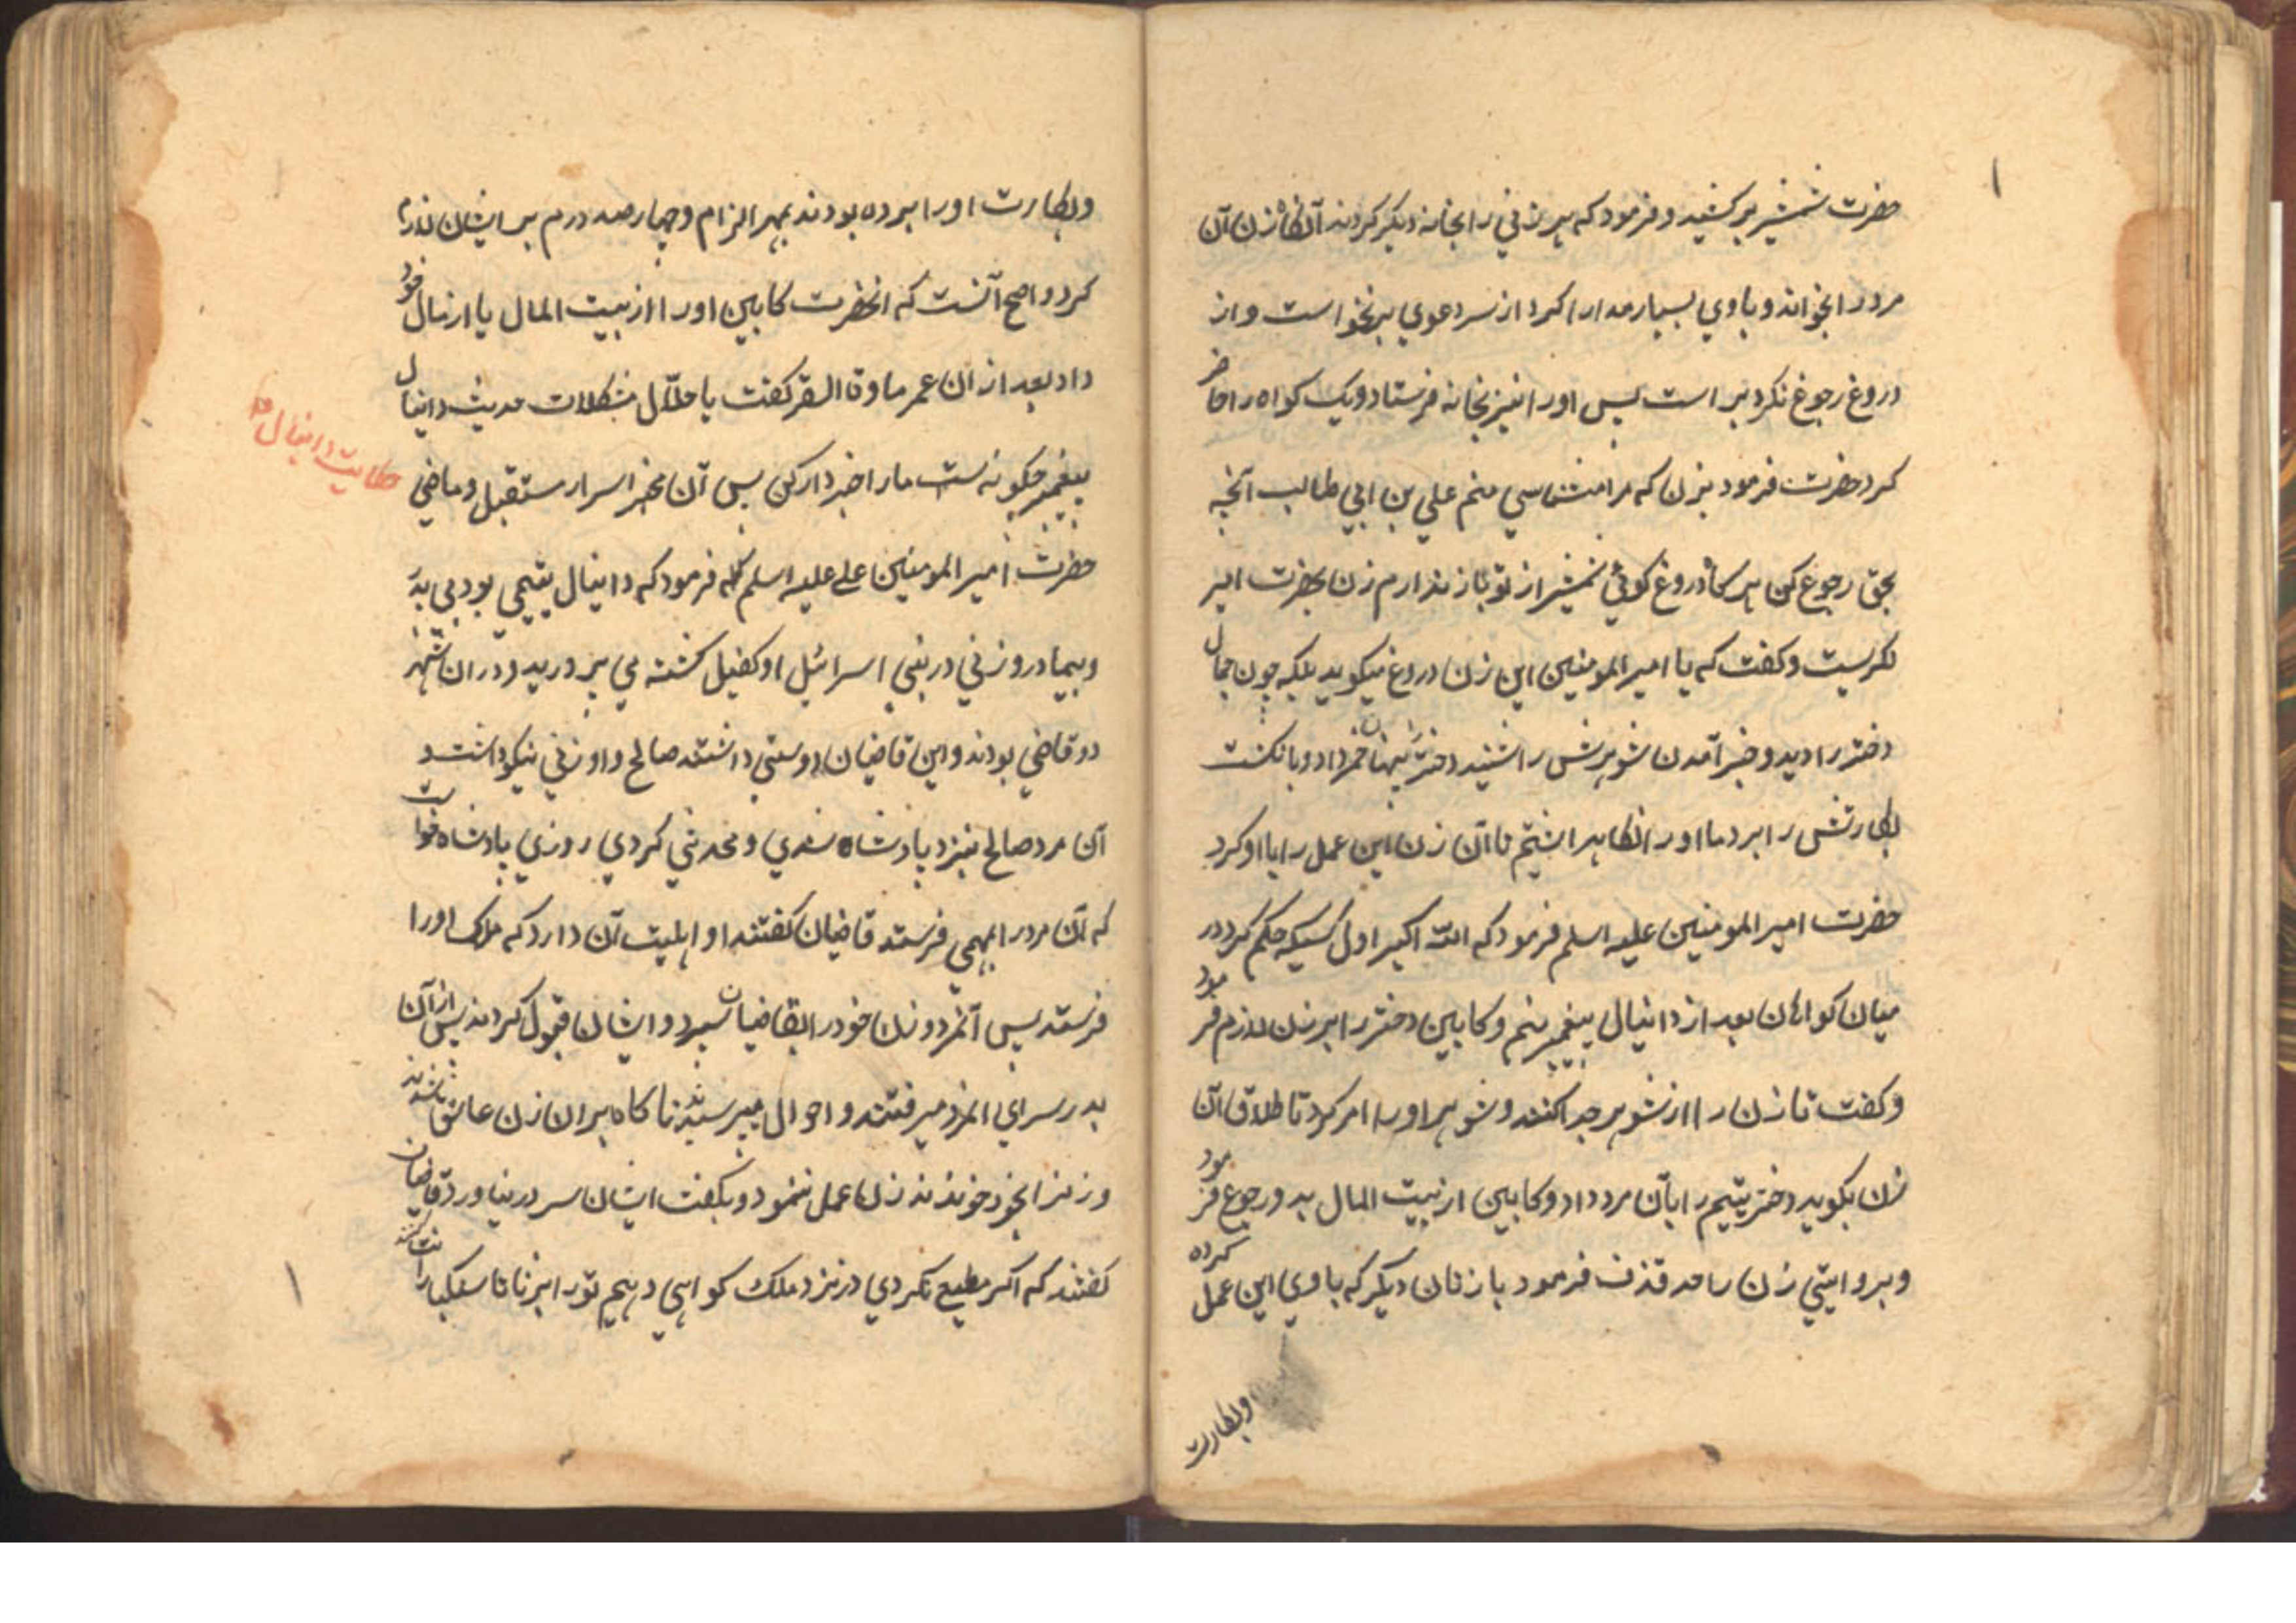 حضرت شمشیر برکشید و فرمود که هر زنی را بخانه دیگر کردند آنگاه زن آن
مرد را بخواند و با وی بسیار مدارا کرد از سر دعوی برنخواست و از
دروغ رجوع نکرد براست پس او را نیز بخانه فرستاد و یک کواه را حاضر
کرد حضرت فرمود بزن که مرا میشناسی منم علی بن ابی طالب آنچه
بحق رجوع کن هر کاه دروغ کوئی شمشیر از تو باز ندارم زن بحضرت امیر
نکریست و کفت که یا امیر المومنین این زن دروغ میکوید بلکه چون جمال
دختر را دید و خبر آمدن شوهرش را شنید دختر یتیم را خمر داد و بانکشت
بکارتش را برد ما او را نکاه داشتیم تا آن زن این عمل را با او کرد
حضرت امیر المومنین علیه اسلم فرمود که الله اکبر اول کسیکه حکم کرد در
میان کواهان بعد از دانیال پیغمبر منم و کابین دختر را بر زن لازم فرمود
و کفت تا زن را از شوهر جدا کنند و شوهر او را امر کرد تا طلاق آن
زن بکوید دختر یتیم را بآن مرد داد و کابین از بیت المال بدو رجوع فرمود
و بروایتی زن را حد قذف فرمود با زنان دیگر که با وی این عمل کرده
وبکارت
وبکارت او را برده بودند بمهر الزام و چهار صد درم بر ایشان لازم
کرد و اصح آنست که انحضرت کابین او را از بیت المال یا از مال خود
داد بعد از آن عمر ما وقا السقر کفت یا حلّال مشکلات حدیث دانیال
پیغمبر چکونه ست ما را خبردار کن پس آن مخبر اسرار مستقبل و ماضی
حکایت دانیال
حضرت امیر المومنین علی علیه اسلم فرمود که دانیال یتیمی بود بی پدر
و بیمادر و زنی در بنی اسرائیل او کفیل کشته می پرورید و در ان شهر
دو قاضی بودند و این قاضیان دوستی داشتند صالح و او زنی نیکو داشت و
آن مرد صالح بنزد پادشاه شدی و محدثی کردی روزی پادشاه خواست
که آن مرد را بمهمی فرستد قاضیان کفتند او اهلیت آن دارد که ملک او را
فرستد پس آنمرد و زن خود را بقاضیان سپرد و ایشان قبول کردند پس از آن
بدر سرای انمرد میرفتند و احوال میپرسیدند ناکاه بر ان زن عاشق شدند
و زنرا بخود خواندند زن عمل ننمود و بکفت ایشان سر در نیاورد قاضیان
کفتند که اکر مطیع نکردی در نزد ملک کواهی دهیم تو را بزنا تا سنکبارانت کنند